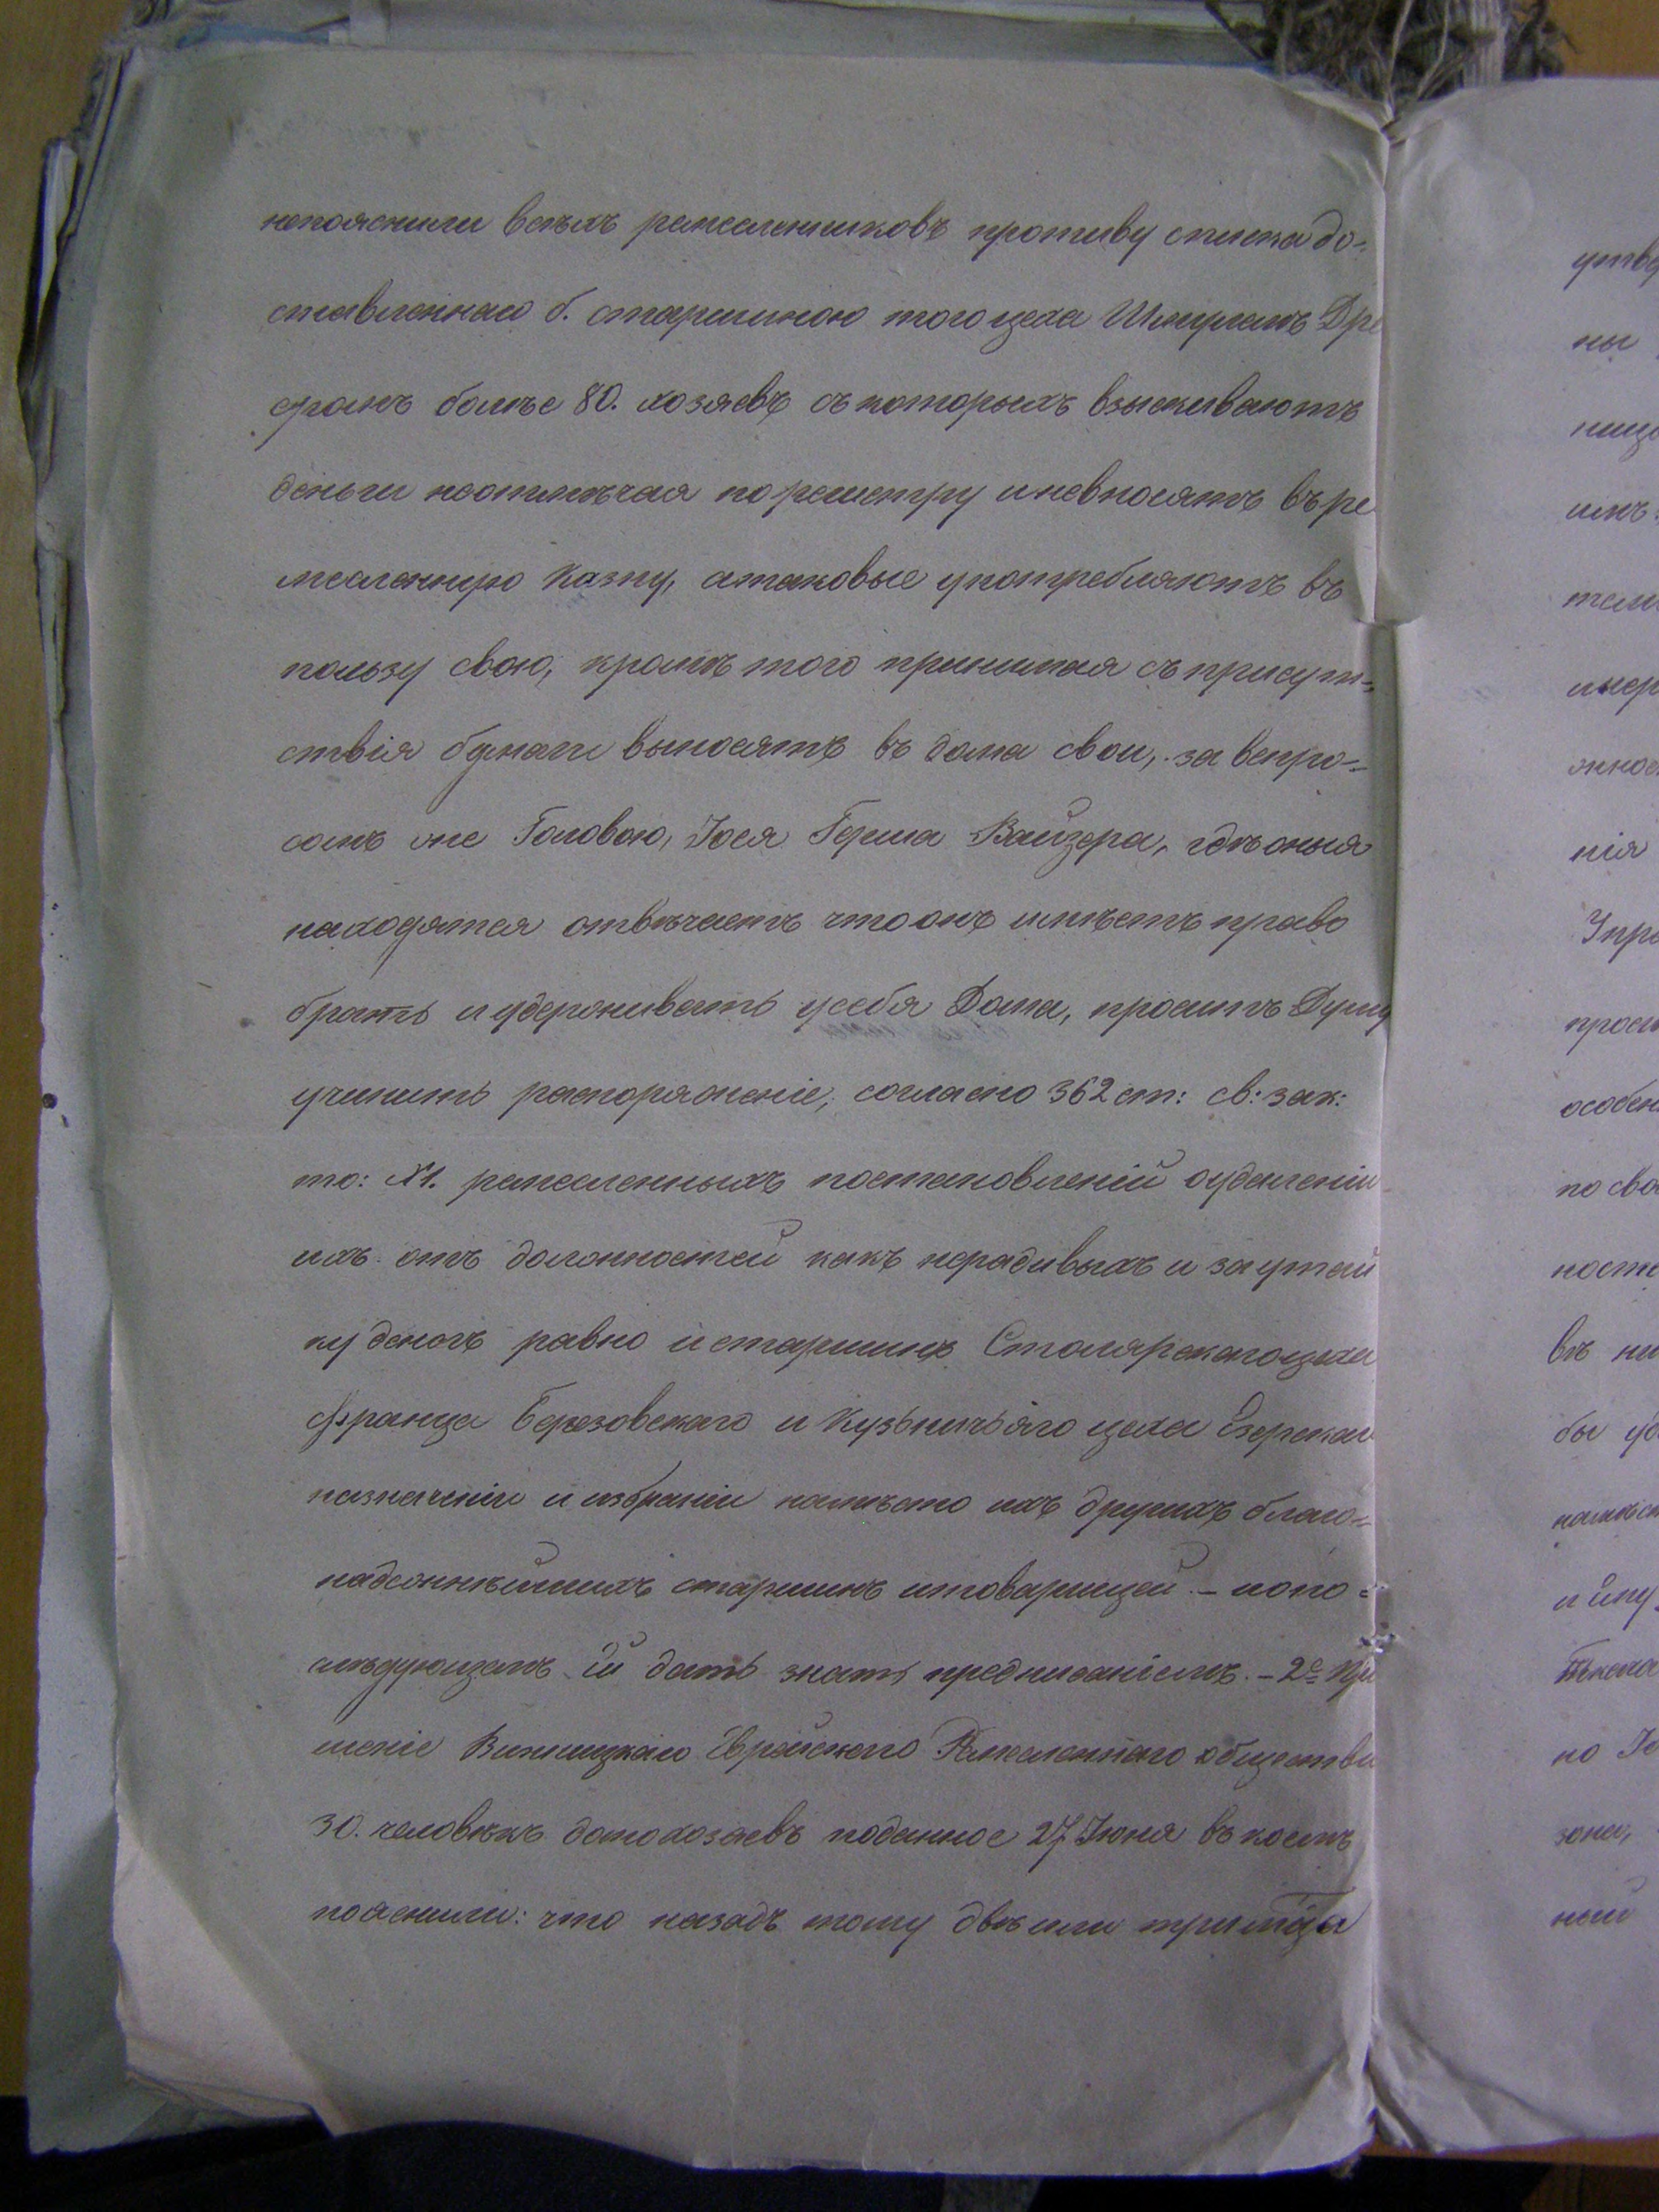 непояснили всѣхъ ремесленниковъ противу списка до-
ставленнаго б. старшиною того цеха Шмулемъ Дре
фомъ болѣе 80. хозяевъ съ которыхъ взыскиваютъ
деньги неотмѣчая по реэстру и невносятъ въ ре
месленную Казну, атаковые употребляютъ въ
пользу свою, кромѣ того принимая съ присут-
ствія бумаги выносятъ въ дома свои, за вспро-
сомъ же Головою, Іося Герша Вайзера, гдѣ оныя
находятся отвѣчаетъ что онъ имѣетъ право
брать и удерживать у себя Дома, проситъ Думу
учинить распоряженіе, согласно 362 ст: св: зак:
то: XI. ремесленныхъ постановленій о удаленіи
ихъ отъ должностей какъ нерадивыхъ и за утай
ку денегъ равно и старшинъ Столярскаго цеха
Франца Березовскаго и Кузьничьяго цеха Езерскаго
назначеніи и избраніи намѣсто ихъ другихъ благо-
надежнѣйшихъ старшинъ и товарищей – и о по-
слѣдующемъ ей дать знать предписаніемъ. – 2е Про
шеніе Винницкаго Еврейскаго Ремесленнаго общества
30. человѣкъ домохозяевъ поданное 27 Іюня въ коемъ
пояснили: что назадъ тому двѣ или три м̃ца